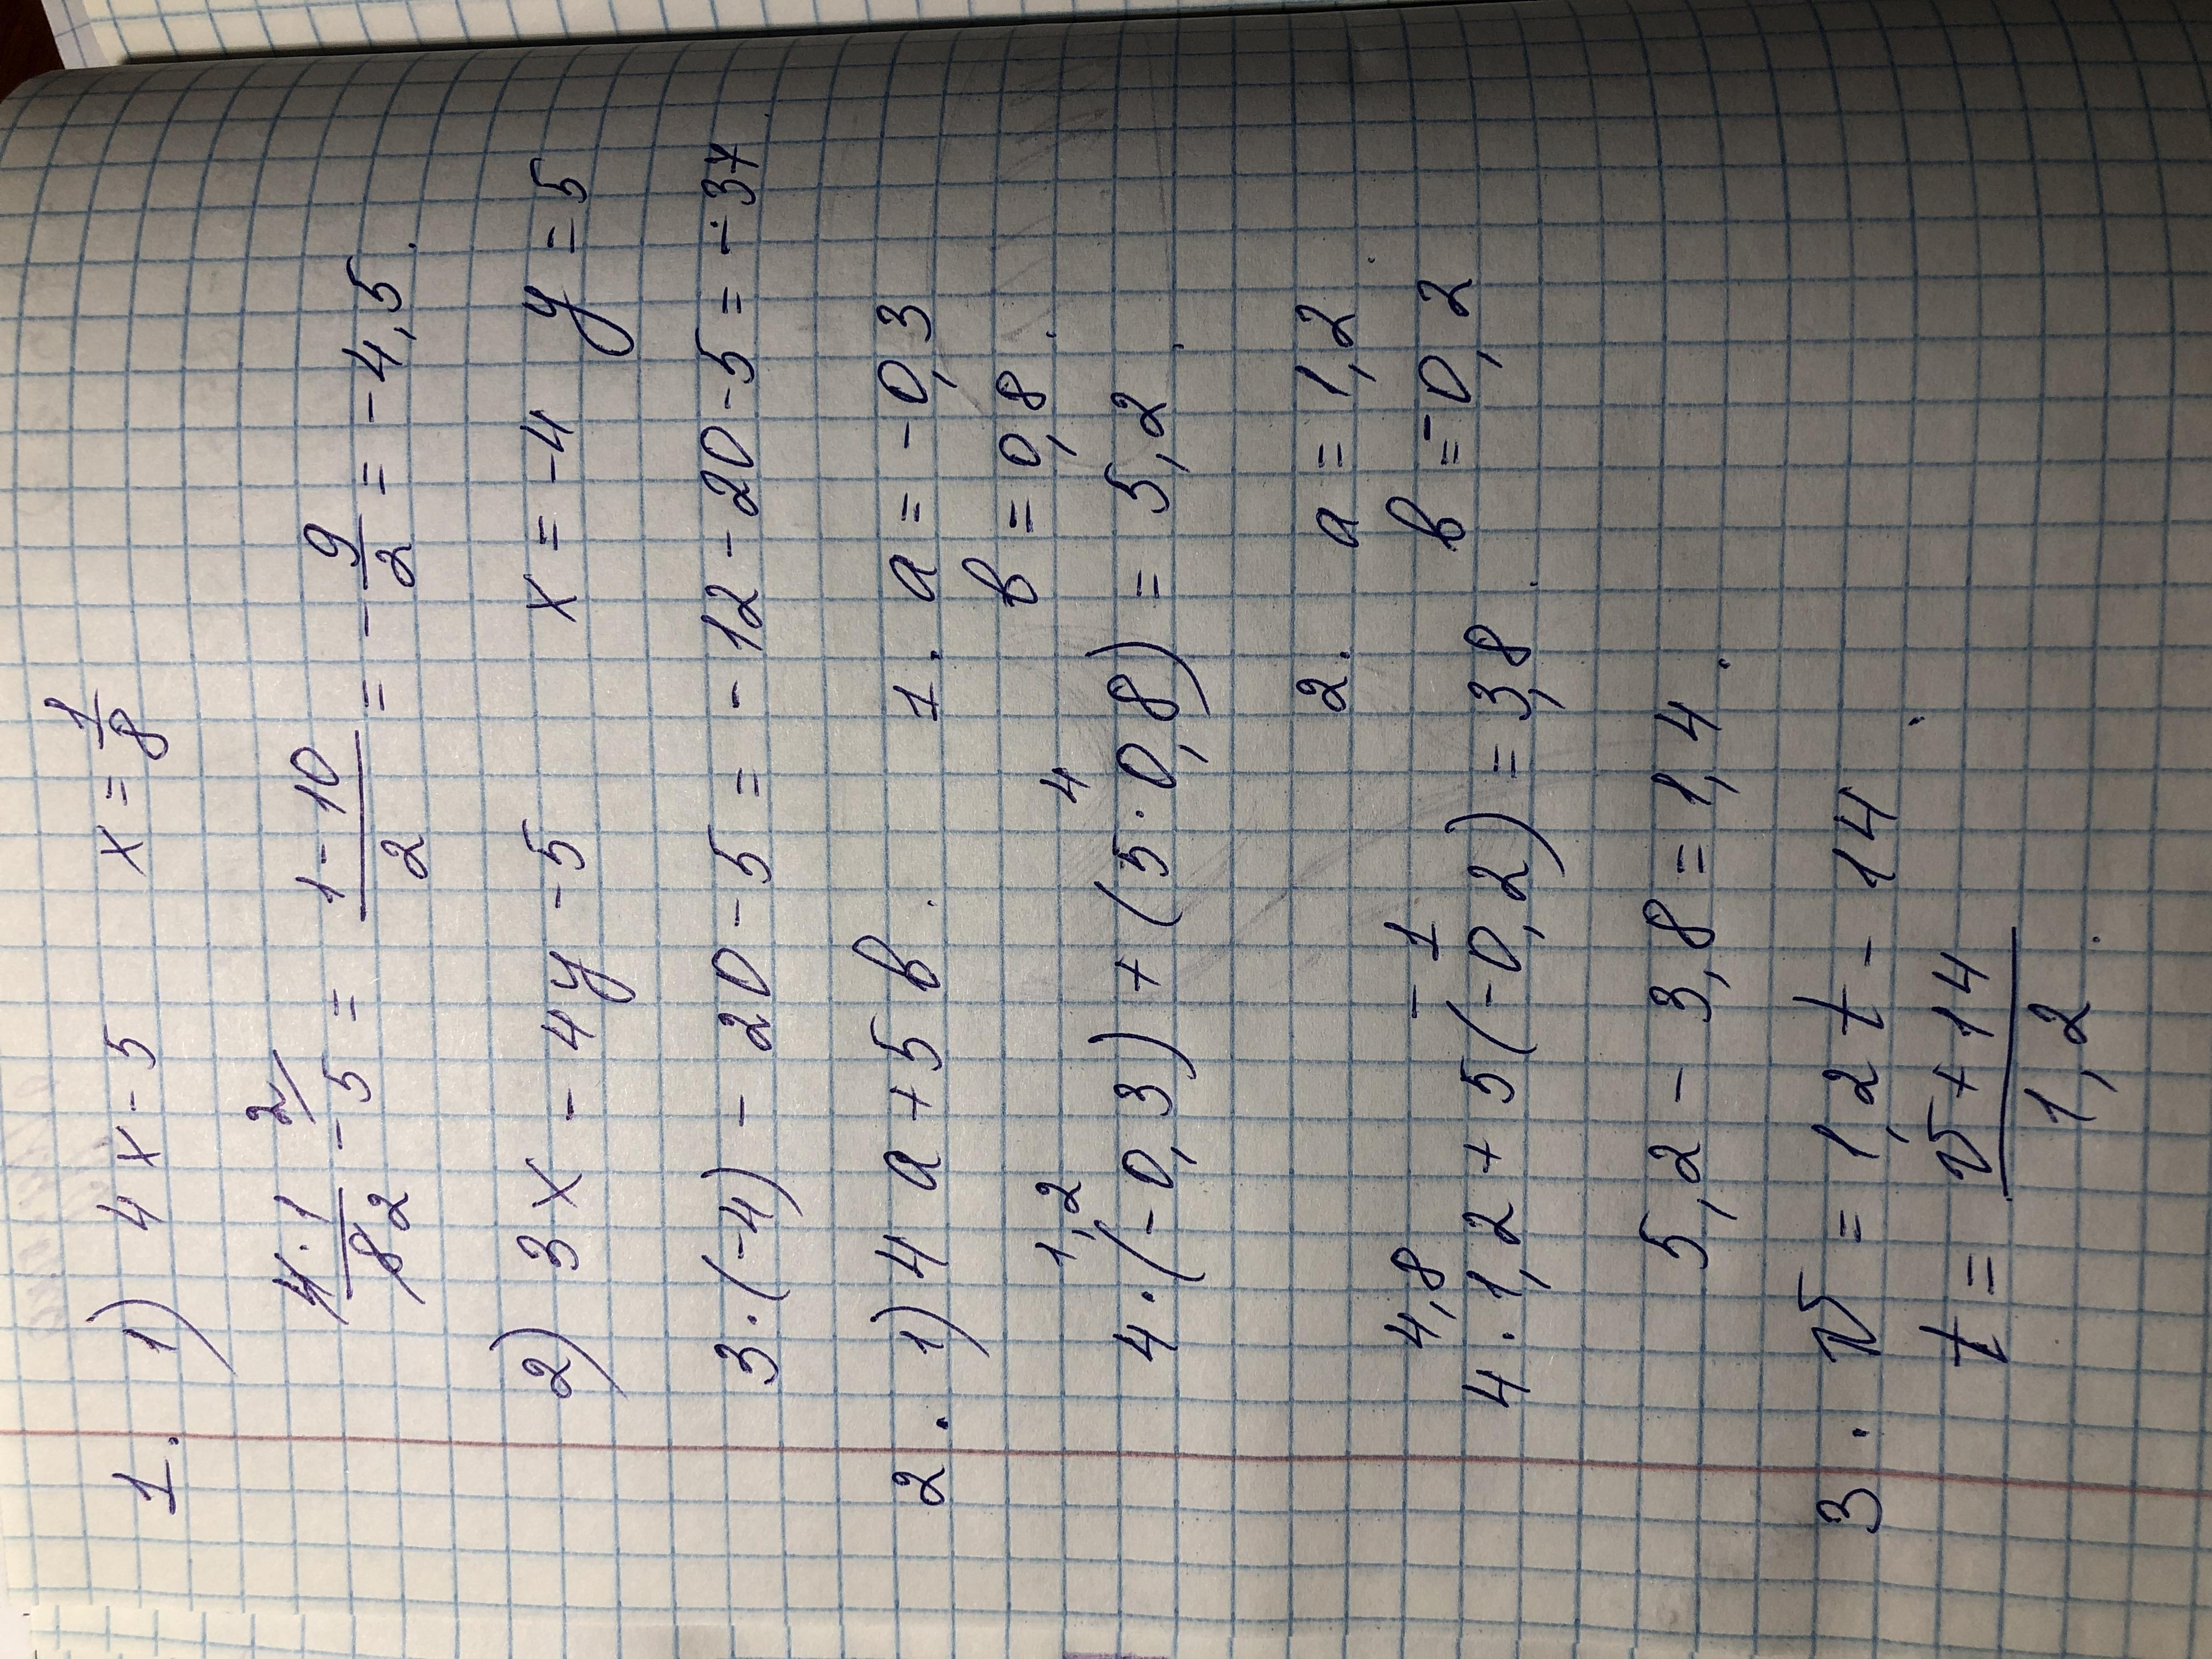 1. 1) 4x - 5 x = 1/8
4·1/8 2 - 5 2/ = 1-10/2 = - 9/2 = -4,5.
2) 3x - 4y - 5 x = -4 y = 5
3·(-4) - 20 - 5 = -12 - 20 - 5 = -37
2. 1) 4a + 5b. 1. a = -0,3
b = 0,8.
1,2 4
4·(-0,3) + (5·0,8) = 5,2
2. a = 1,2
b = -0,2
4,8 -1
4·1,2 + 5(-0,2) = 3,8
5,2 - 3,8 = 1,4.
3. v = 1,2t - 14
t = v+14/1,2